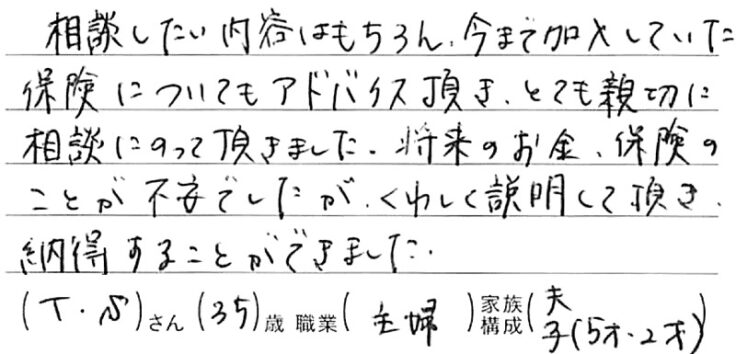 相談したい内容はもちろん、今まで加入していた
保険についてもアドバイス頂き、とても親切に
相談にのって頂きました。将来のお金、保険の
ことが不安でしたが、くわしく説明して頂き、
納得することができました。
(T・S)さん (35)歳 職業(主婦)家族構成(夫 子(5才・2才))